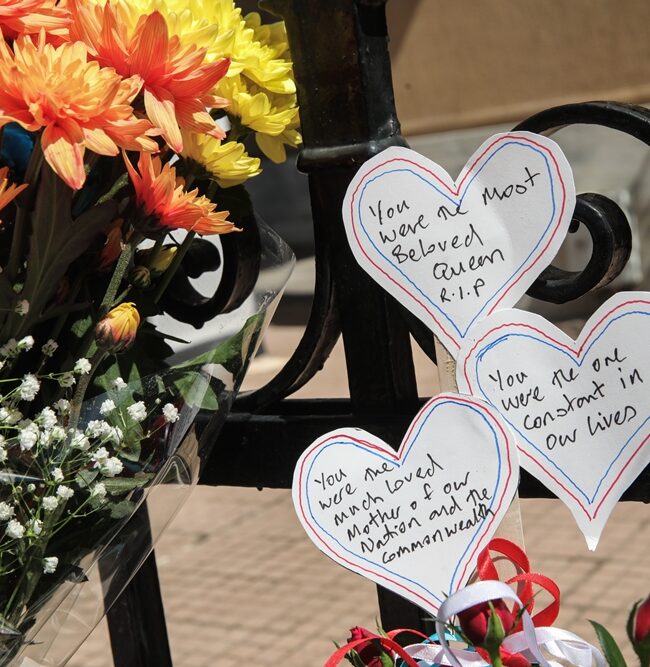 You
were the most
Beloved
Queen
R.I.P
You
were the one
constant in
our lives
You
were the
much loved
Mother of our
Nation and the
commonwealth